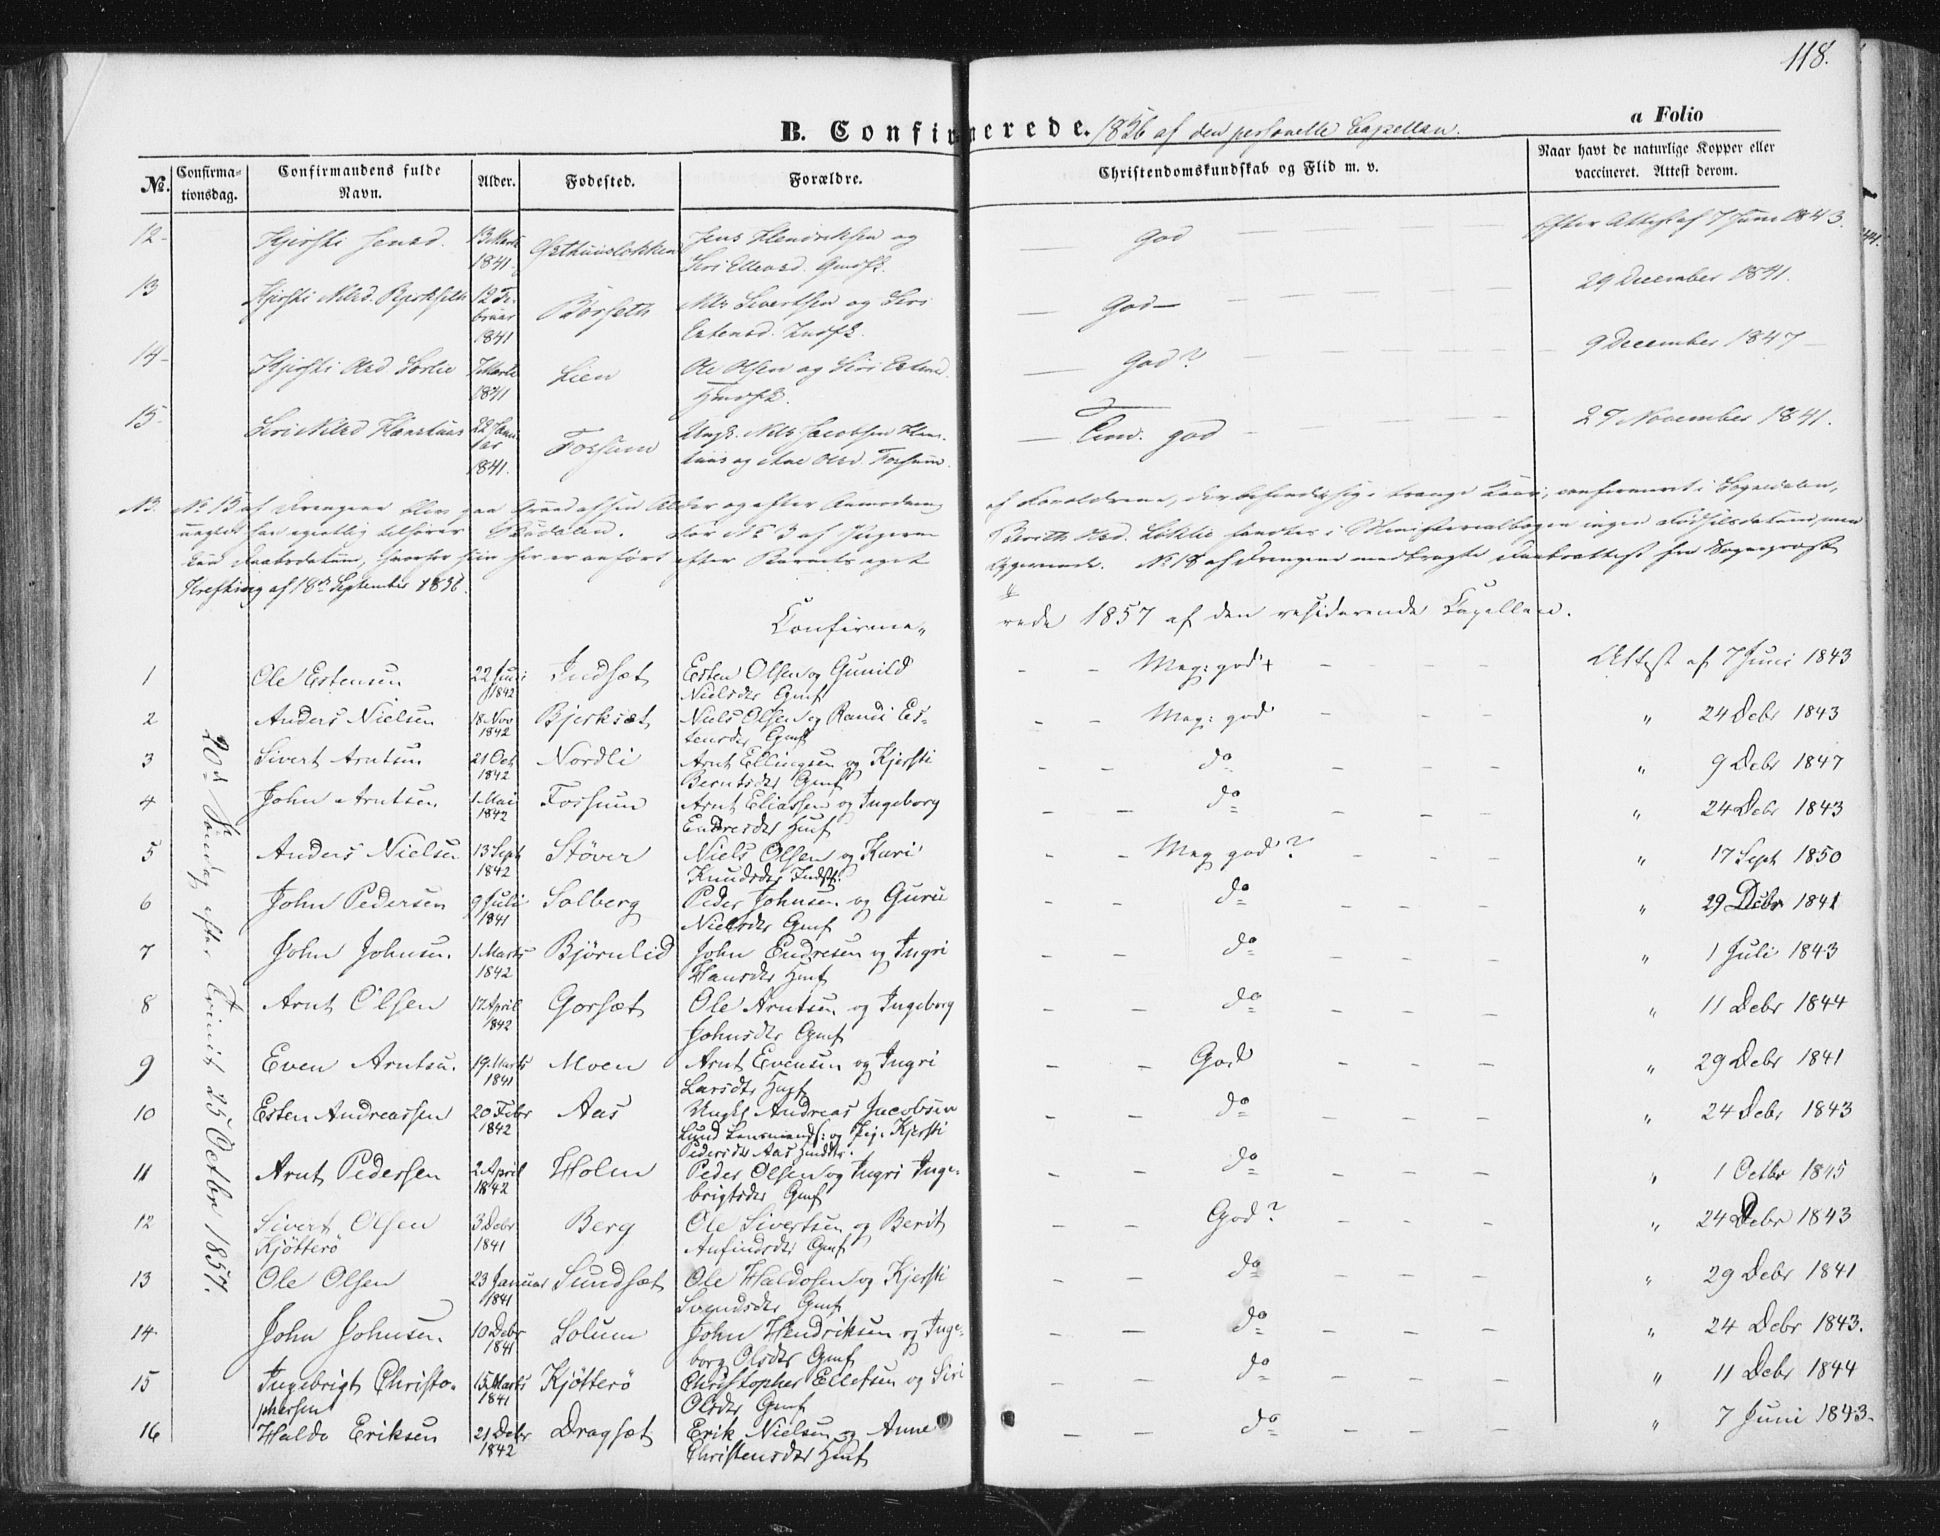 118.
B. Confirmerede. 1856 af den personelle Capellan.
a Folio
No. Confirmationsdag. Confirmandens fulde Navn. Alder. Fødested. Forældre. Christendomskundskab og Flid m. v. Naar havt de naturlige Kopper eller vaccineret. Attest derom.
12 Kjersti Jensd. 13 Marts 1841. Jens Hendriksen og Siri Ellevsd. Gmfk. God Efter Attest af 7 Juni 1843.
13 Kjersti Nilsd. Bjerkseth 12 Februar 1841 Børseth Nils Sivertsen og Siri Estensd. God 29 December 1841.
14 Kjersti Olsd Sørlie 7 Marts 1841 Lien Ole Olsen og Siri Estensd. God? 9 December 1847
15 Siri Nilsd 22 Januar 1841. Forsum Ungk. Nils Jacobsen og Ane Olsd. Forsum. Tem. god 27 November 1841.
NB. No 13 af Drengene blev paa Grund af sin Alder og efter Anmodning af Forældrene, der befinder sig i trange Kaar, confirmeret i
uagtet han egentlig tilhører For No 3 af Pigerne Berith Olsd. fandtes i Ministerialbogen ingen Fødselsdatum, men
kun Daabsdatum, hvorfor hun her er anført efter Barnets eget No 18 af Drengene medbragte Daabsattest fra Sognepræst
af 18de September 1856.
Confirmerede 1857 af den residerende Capellan.
20de Søndag efter Trinit. 25 Octbr 1857.
1 Ole Estensen 22 Juni 1842 Indsæt Esten Olsen og Gunild Nielsdtr Gmf Meg: god + Attest af 7 Juni 1843
2 Anders Nielsen 18 Nov 1842 Bjerksæt Niels Olsen og Randi Estensdtr Gmf Meg: god " 24 Debr 1843
3 Sivert Arntsen 21 Oct 1842 Nordli Arnt Ellingsen og Kjersti Berntsdtr Gmf do " 9 Debr 1847
4 John Arntsen 1 Mai 1842 Forsum Arnt Eliassen og Ingeborg Endresdtr Hmf do " 24 Debr 1843
5 Anders Nielsen 13 Sept 1842 Støver Niels Olsen og Kari Knudsdtr Indst: Meg god? " 17 Sept 1850
6 John Pedersen 9 Juli 1841 Solberg Peder Johnsen og Guru Nielsdtr Gmf do " 29 Debr 1841
7 John Johnsen. 1 Marts 1842 Bjørnlid John Endresen og Ingri Hansdtr Hmf do " 1 Juli 1843
8 Arnt Olsen 17 April 1842 Gorsæt Ole Arntsen og Ingeborg Johnsdtr Gmf do " 11 Debr 1844
9 Even Arntsn. 19 Marts 1841 Moen Arnt Evensen og Ingri Larsdtr God " 29 Debr 1841
10 Esten Andreassen 20 Febr 1842 Aas Ungkl Andreas Jacobsen Lund Lensmands: og Pig: Kjersti Pedersdtr Aas do " 24 Debr 1843
11 Arnt Pedersen 2 April 1842 Holm Peder Olsen og Ingri Ingebrigtsdtr Gmf do " 1 Octbr 1845
12 Sivert Olsen Kjötterö 3 Debr 1841 Berg Ole Sivertsen og Berit Anfindsdtr Gmf God? " 24 Debr 1843
13 Ole Olsen 23 Januar 1841 Sundsæt Ole Haldosen og Kjersti Svendsdtr Gmf do " 29 Debr 1841
14 John Johnsen 10 Debr 1841 Solum John Hendriksen og Ingeborg Olsdtr Gmf do " 24 Debr 1843.
15 Ingebrigt Christophersen 15 Marts 1841 Kjötterö Christopher Ellefsen og Siri Olsdtr Gmf do " 11 Debr 1844
16 Haldo Eriksen 21 Debr 1842 Dragsæt Erik Nielsen og Anne Christensdtr Hmf do " 7 Juni 1843.